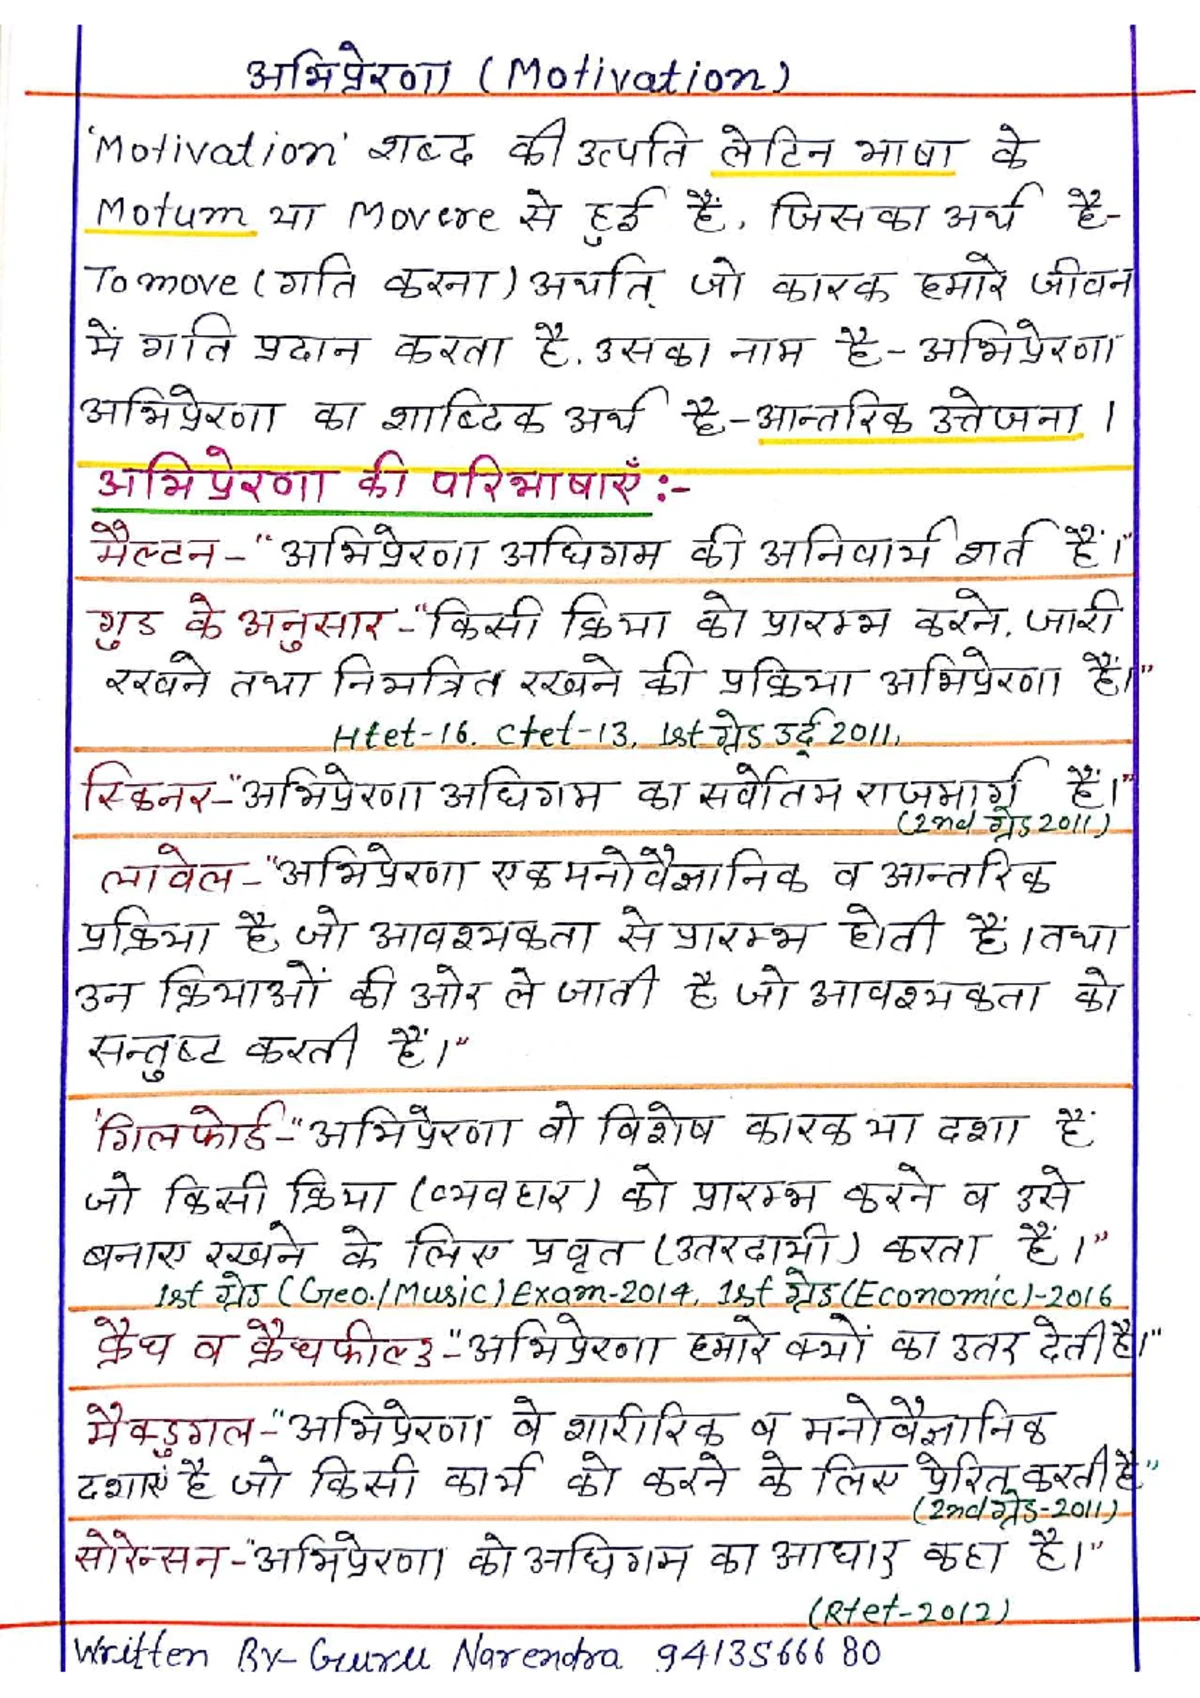 अभिप्रेरणा (Motivation)
'Motivation' शब्द की उत्पति लेटिन भाषा के
Motum या Movere से हुई हैं, जिसका अर्थ है-
To move (गति करना) अर्थात् जो कारक हमारे जीवन
में गति प्रदान करता है, उसका नाम है- अभिप्रेरणा
अभिप्रेरणा का शाब्दिक अर्थ है- आन्तरिक उत्तेजना ।
अभिप्रेरणा की परिभाषाएँ :-
मैल्टन- "अभिप्रेरणा अधिगम की अनिवार्य शर्त हैं।"
गुड के अनुसार- "किसी क्रिया को प्रारम्भ करने, जारी
रखने तथा नियमत्रित रखने की प्रक्रिया अभिप्रेरणा हैं।"
Htet-16, Ctet-13, 1st ग्रेड उर्दू 2011,
स्किनर- "अभिप्रेरणा अधिगम का सर्वोतम राजमार्ग हैं।"
(2nd ग्रेड 2011)
लावेल- "अभिप्रेरणा एक मनोवैज्ञानिक व आन्तरिक
प्रक्रिया है, जो आवश्यकता से प्रारम्भ होती हैं। तथा
उन क्रियाओं की ओर ले जाती है जो आवश्यकता को
सन्तुष्ट करती हैं।"
'गिलफोर्ड- "अभिप्रेरणा वो विशेष कारक या दशा हैं
जो किसी क्रिया (व्यवहार) को प्रारम्भ करने व उसे
बनाए रखने के लिए प्रवृत (उतरदायी) करता हैं।"
1st ग्रेड (Geo./Music) Exam-2014, 1st ग्रेड (Economic)-2016
क्रैच व क्रैचफील्ड- "अभिप्रेरणा हमारे क्यों का उतर देती है।"
मैक्डुगल- "अभिप्रेरणा वे शारीरिक व मनोवैज्ञानिक
दशाएं है जो किसी कार्य को करने के लिए प्रेरित करती है"
(2nd ग्रेड-2011)
सोरेन्सन- "अभिप्रेरणा को अधिगम का आधार कहा है।"
(Rtet-2012)
Written By- Guru Narendra 9413566680